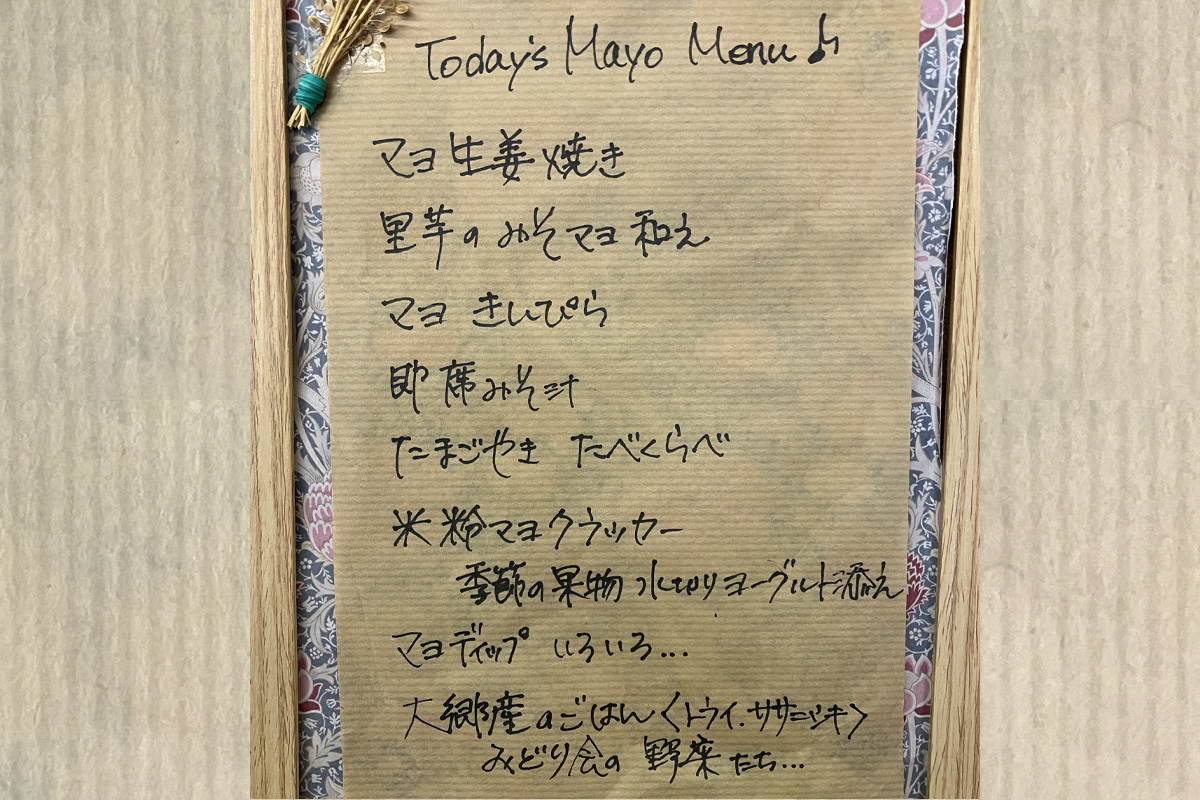 Today's Mayo Menu♪
マヨ生姜焼き
里芋のみそマヨ和え
マヨ きんぴら
即席みそ汁
たまごやき たべくらべ
米粉マヨクラッカー
季節の果物 水切りヨーグルト添え
マヨディップ いろいろ...
大郷産のごはん〈トウイ.ササニシキ〉
みどり会の野菜たち...